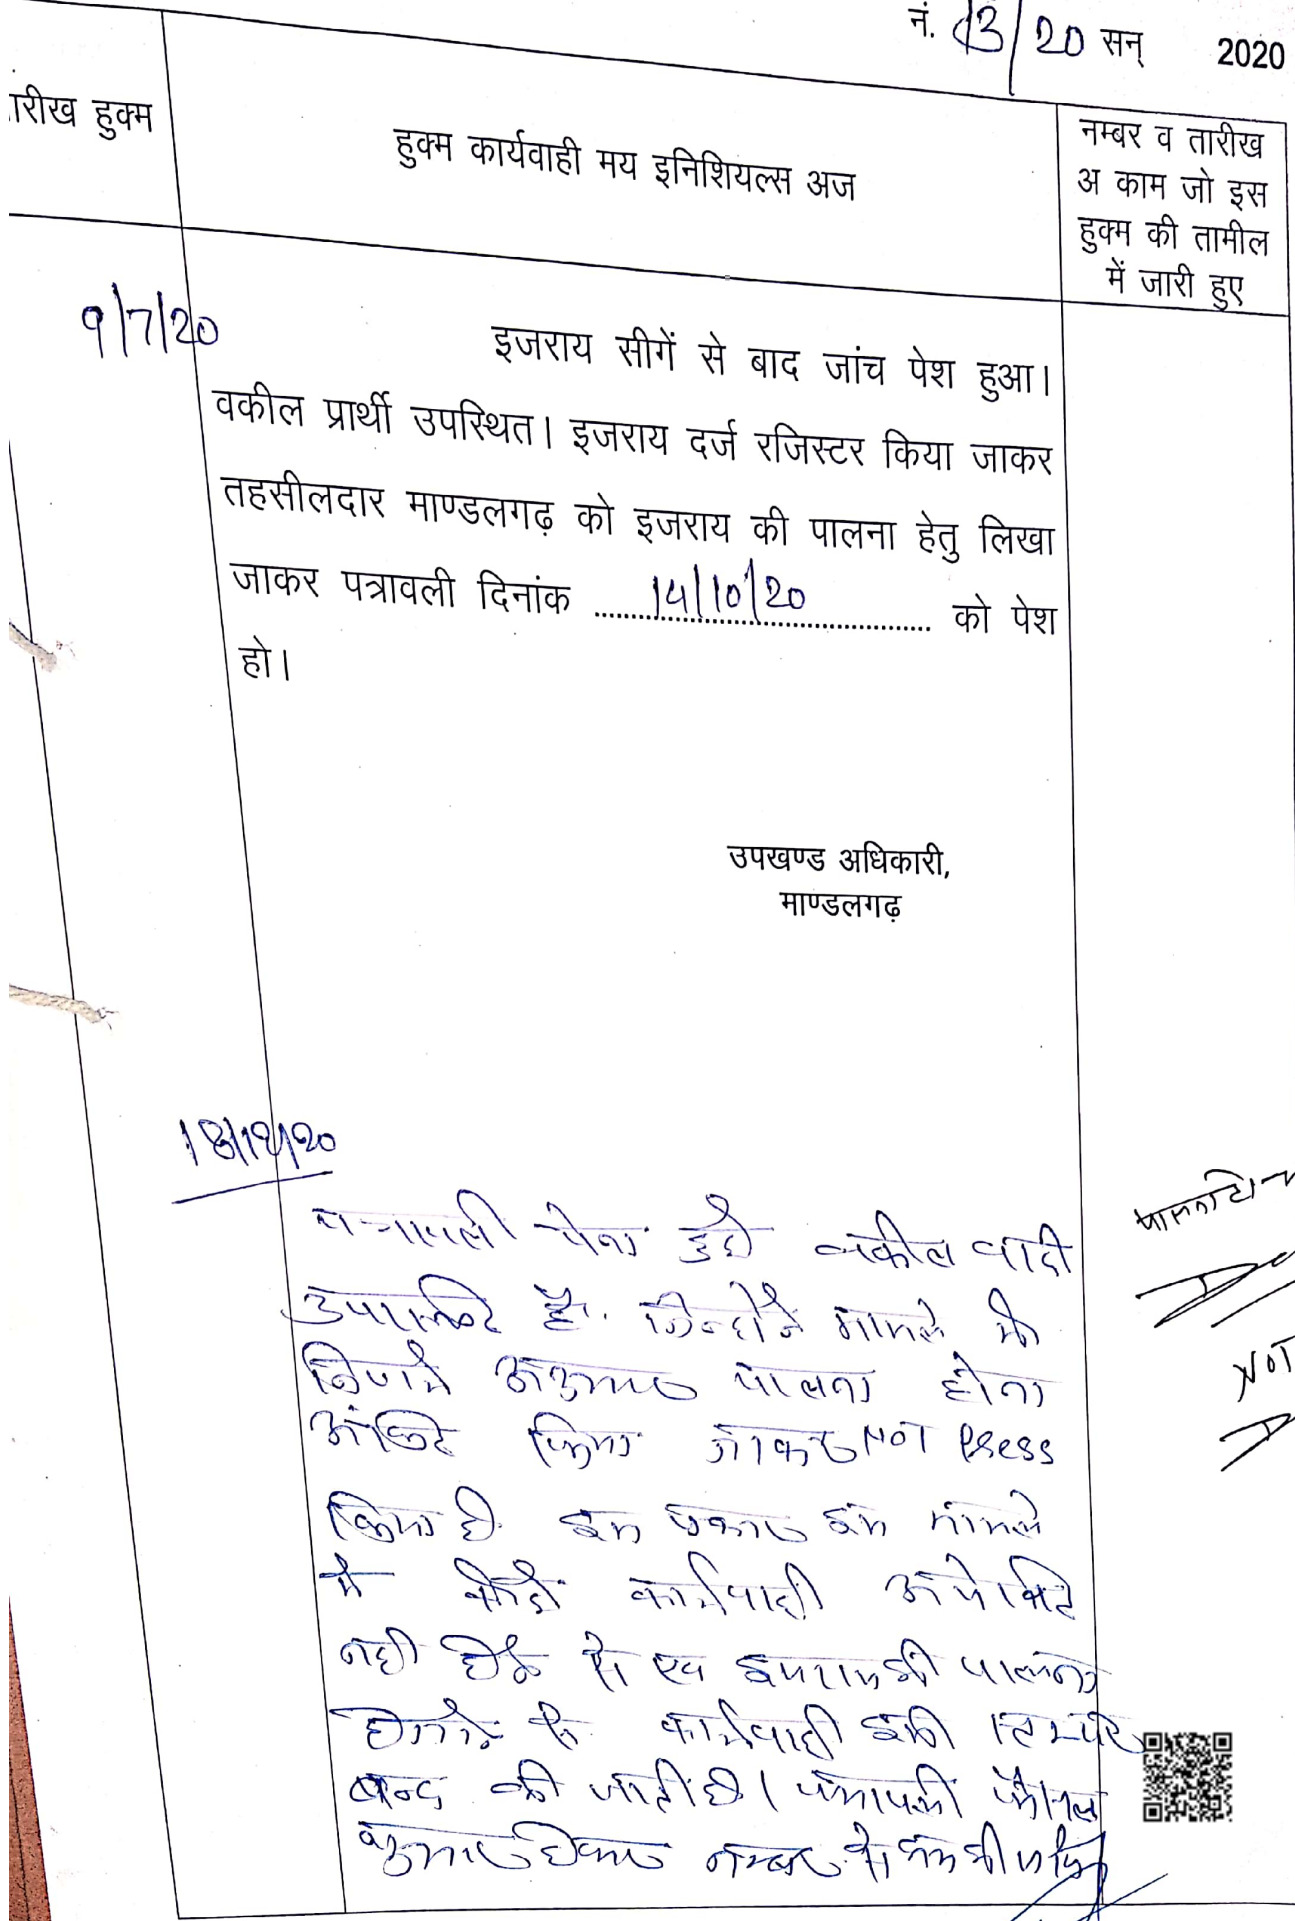 नं. 13/20 सन् 2020
तारीख हुक्म
हुक्म कार्यवाही मय इनिशियल्स अज
नम्बर व तारीख
अ काम जो इस
हुक्म की तामील
में जारी हुए
9/7/20
इजराय सीगें से बाद जांच पेश हुआ।
वकील प्रार्थी उपस्थित। इजराय दर्ज रजिस्टर किया जाकर
तहसीलदार माण्डलगढ़ को इजराय की पालना हेतु लिखा
जाकर पत्रावली दिनांक 14/10/20 को पेश
हो।
उपखण्ड अधिकारी,
माण्डलगढ़
18/12/20
पत्रावली पेश हुई वकील वादी
उपस्थित है. जिन्होने मामले में
निर्णय अनुसार पालना होना
अंकित किया जाकर NOT Press
किया है. इस प्रकार इस मामले
में कोई कार्यवाही अपेक्षित
नही होने से एवं इजराय की पालना
होजाने से कार्यवाही इसी स्तर पर
बन्द की जाती है। पत्रावली फैसल
शुमार होकर नम्बर से कम की जावे
NOT